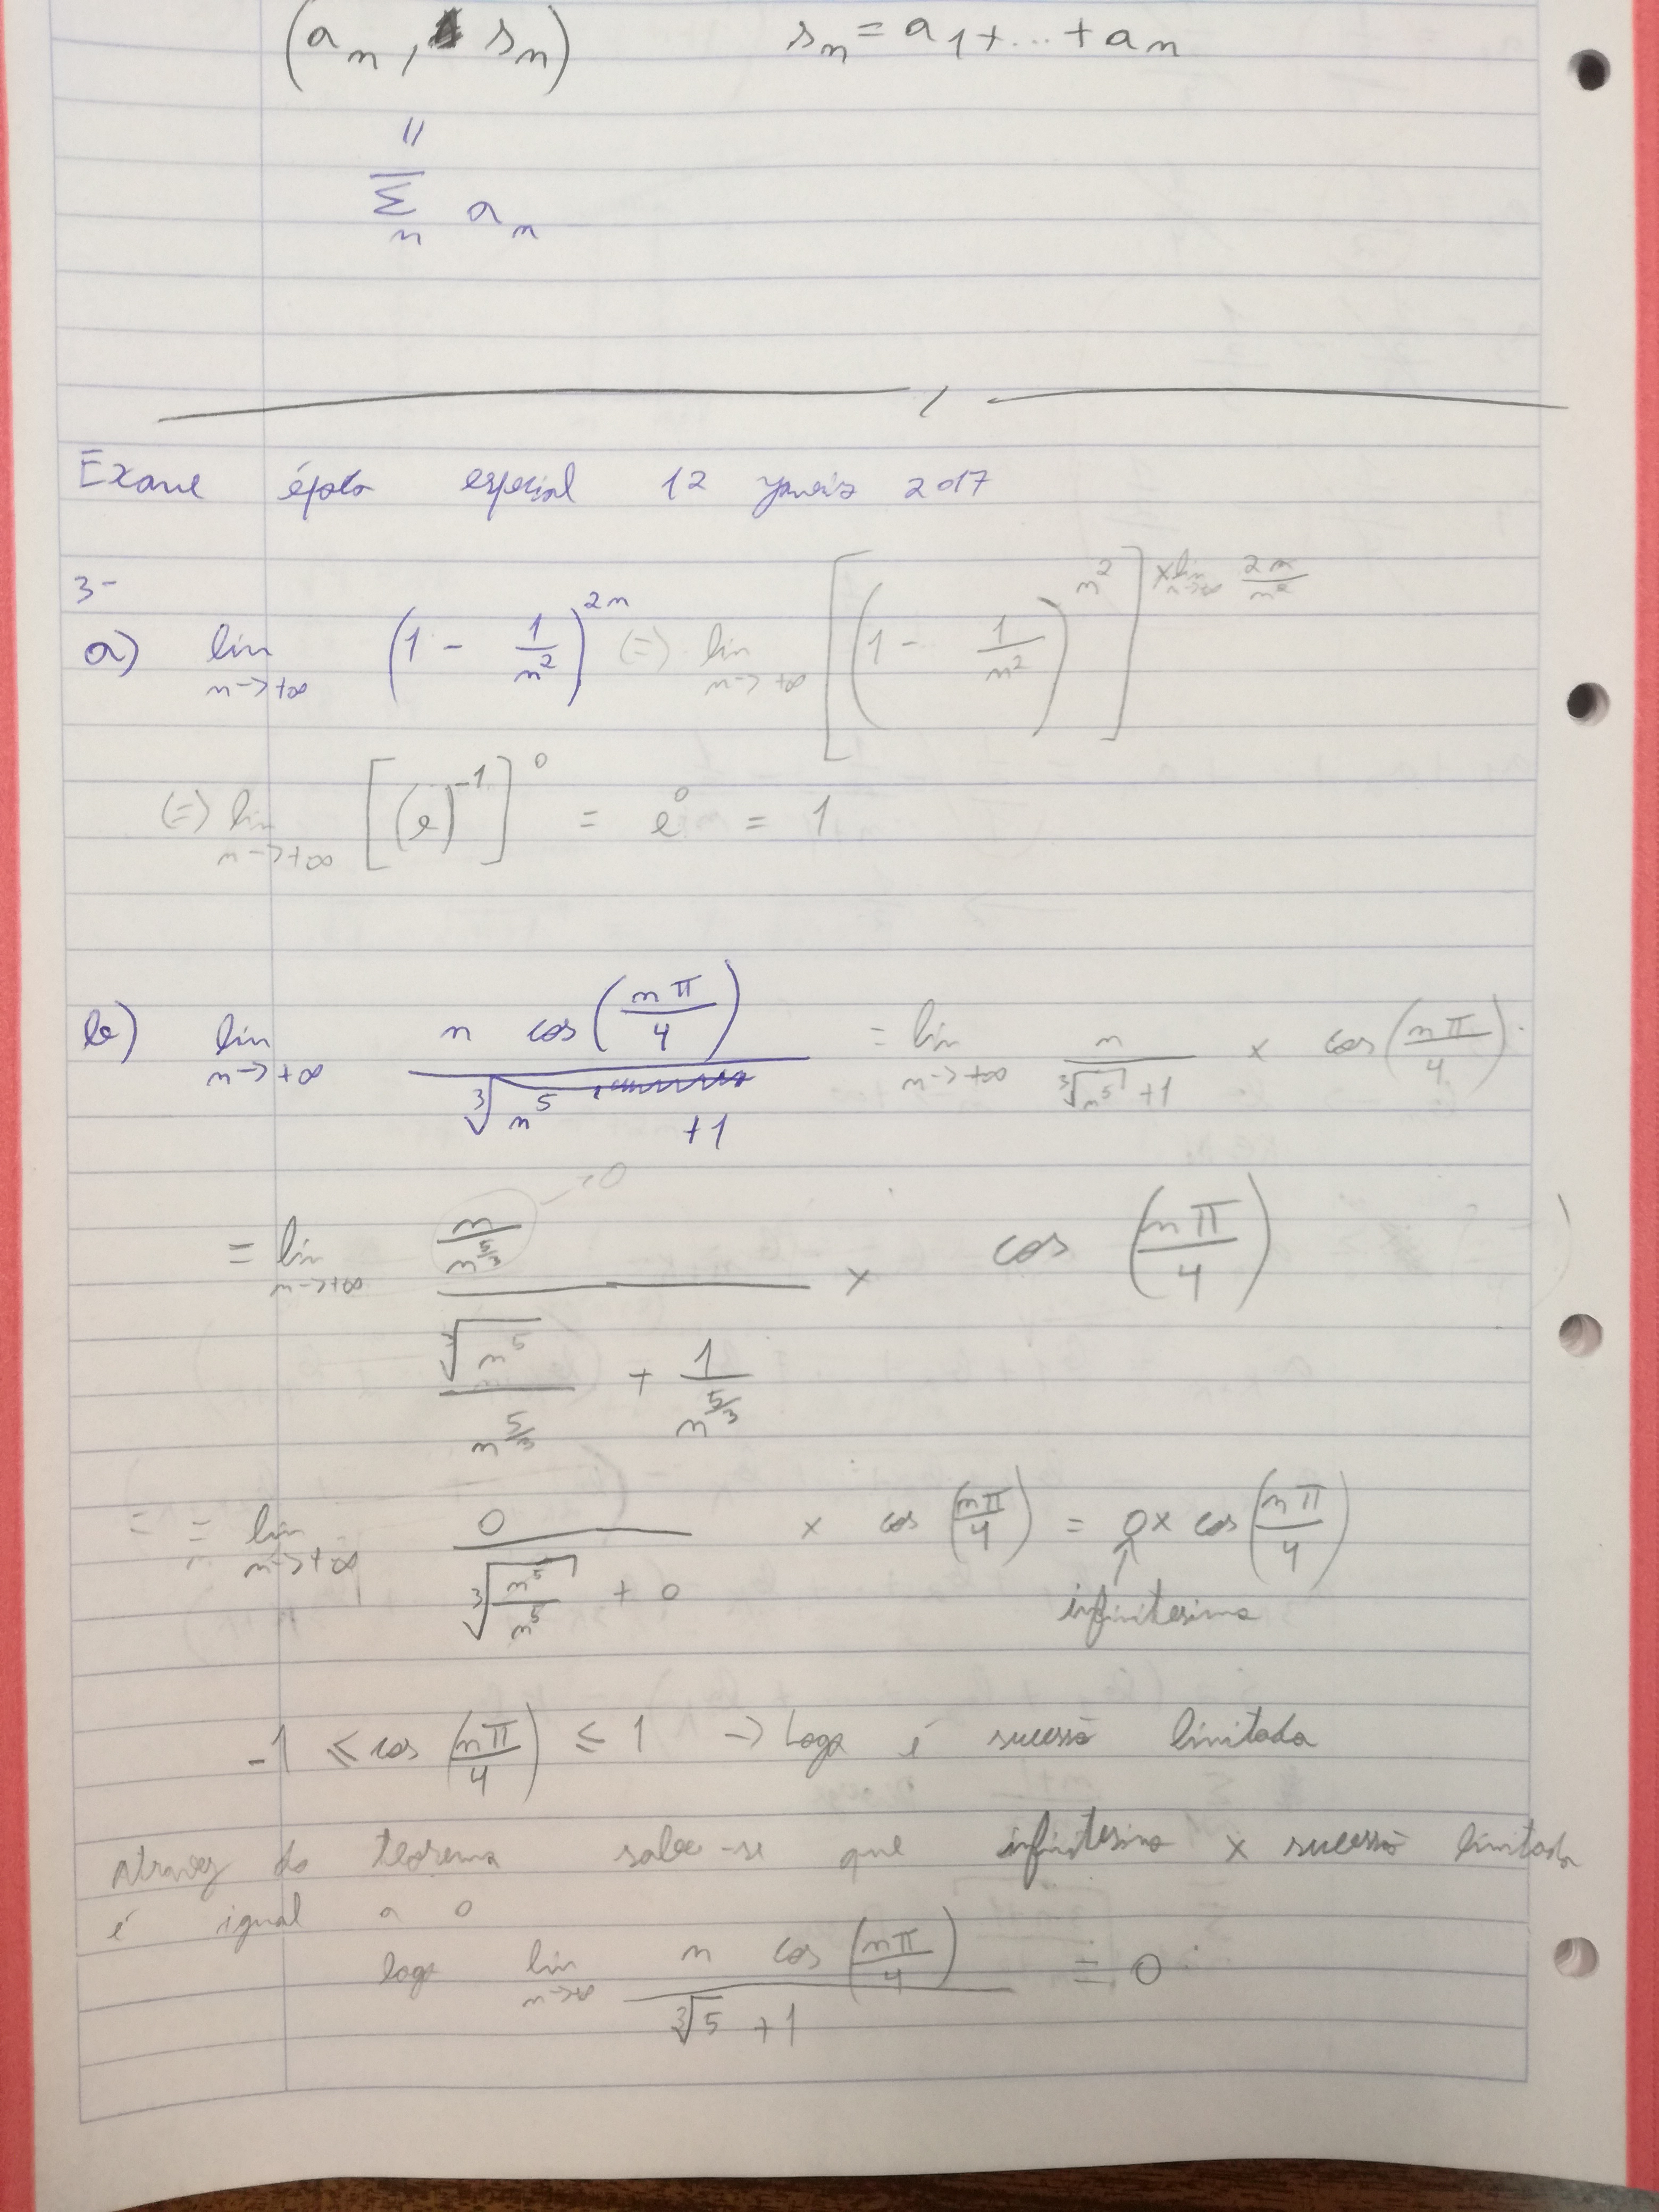 (aₙ, sₙ) sₙ = a₁ + ... + aₙ
॥
Σₙ aₙ
Exame época especial 12 janeiro 2017
3-
a) lim n->+∞ (1 - 1/n²)^2n (=) lim n->+∞ [(1 - 1/n²)^n²]^(× lim n->+∞ 2n/n²)
(=) lim n->+∞ [(e)^-1]^0 = e^0 = 1
b) lim n->+∞ n cos(nπ/4) / ∛n⁵ +1 = lim n->+∞ n / ∛n⁵ +1 × cos(nπ/4)
= lim n->+∞ (n/n^5/3) / (∛n⁵/n^5/3 + 1/n^5/3) × cos(nπ/4) → 0
= = lim n->+∞ 0 / (∛(n⁵/n⁵) + 0) × cos(nπ/4) = 0 × cos(nπ/4)
↑
infinitesimo
-1 ≤ cos(nπ/4) ≤ 1 -> Logo é sucessão limitada
Atraves do teorema sabe-se que infinitesimo × sucessão limitada
é igual a 0
logo lim n->+∞ n cos(nπ/4) / ∛5 +1 = 0